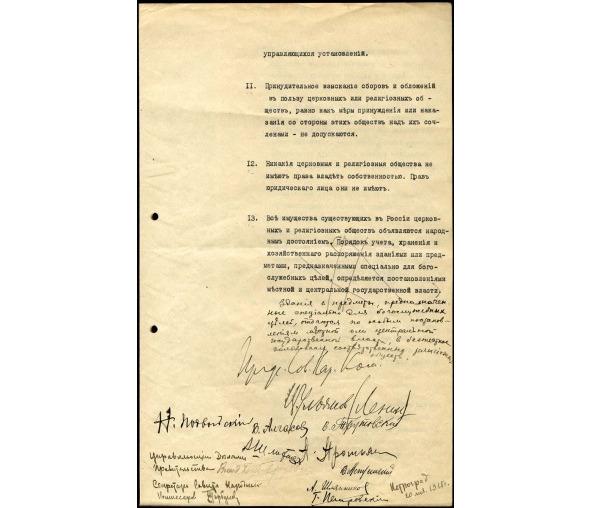 управляющихся установленій.
II. Принудительное взысканіе сборов и обложеній
в пользу церковных или религіозных об -
ществ, равно как мѣры принужденія или нака-
занія со стороны этих обществ над их со-
членами - не допускаются.
12. Никакія церковныя и религіозныя общества не
имѣют права владѣть собственностью. Прав
юридическаго лица они не имѣют.
13. Всѣ имущества существующих в Россіи церков-
ных и религіозных обществ объявляются народ-
ным достояніем. Порядок учета, храненія и
хозяйственнаго распоряженія зданіями или пред-
метами, предназначенными спеціально для бого-
служебных цѣлей, опредѣляется постановленіями
мѣстной и центральной государственной власти.
Зданія и предметы, предназначен-
ные спеціально для богослужебных
цѣлей, отдаются по особым постанов-
леніям мѣстной или центральной
государственной власти, в безплатное
пользованіе соотвѣтственных религіозных
обществ.
Предс. Сов. Нар. Ком.
Ульянов (Ленин)
Н. Подвойскій
В. Алгасов
В. Трутовскій
А. Шлихтер
П. Прошьян
Управляющій Дѣлами
Правительства
В. Менжинскій
А. Шляпников
Г. Петровскій
Секретарь Совѣта Народных
Комиссаров Горбунов
Петроград
20 янв. 1918 г.